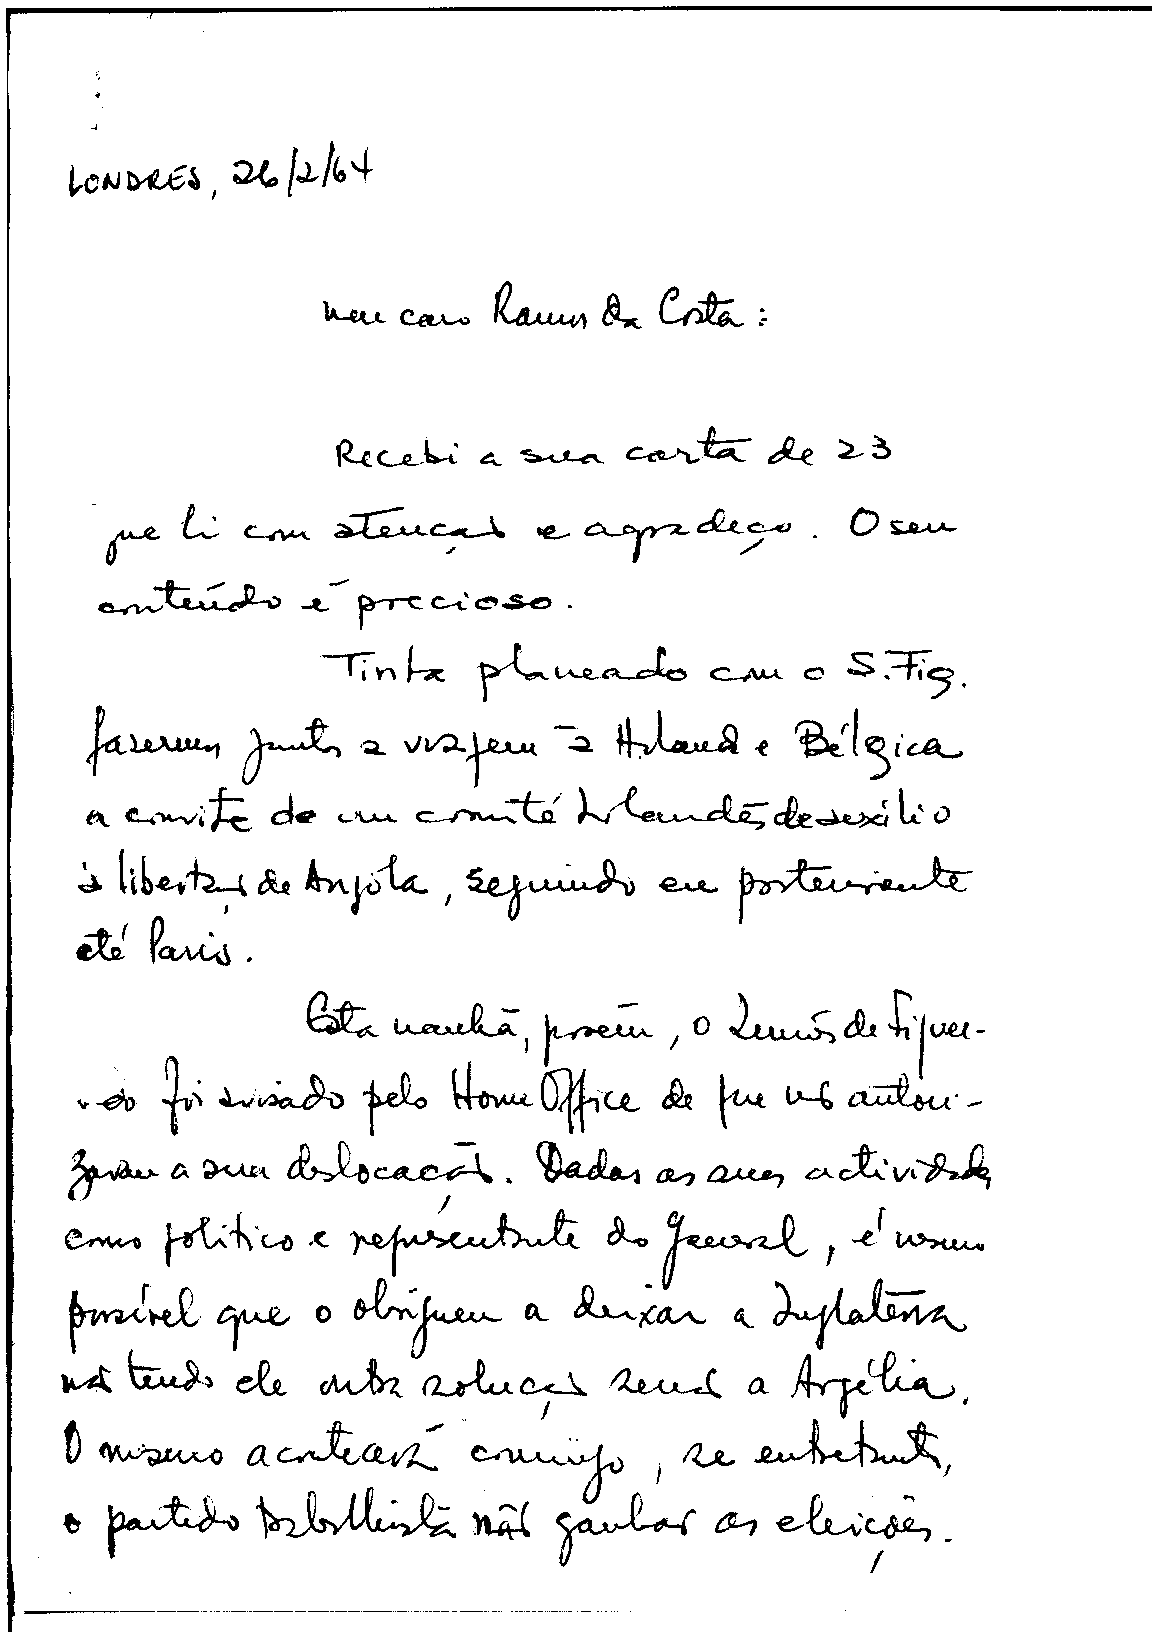 LONDRES, 26/2/64
Meu caro Ramos da Costa:
Recebi a sua carta de 23
que li com atenção e agradeço. O seu
conteúdo é precioso.
Tinha planeado com o S. Fig.
fazermos juntos a viagem à Holanda e Bélgica
a convite de um comité holandês de auxílio
à libertação de Angola, seguindo eu posteriormente
até Paris.
Esta manhã, porém, o de Figuei-
redo foi avisado pelo Home Office de que não autori-
zavam a sua deslocação. Dadas as suas actividades
como político e representante do General, é mesmo
possível que o obriguem a deixar a Inglaterra
não tendo ele outra solução senão a Argélia.
O mesmo acontecerá comigo, se entretanto,
o partido trabalhista não ganhar as eleições.